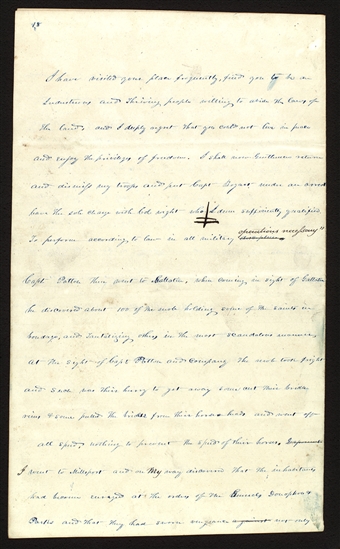 18
I have visited your place frequently, find you to be an
Industrious and thriving people willing to abide the Laws of
the Land, and I deeply regret that you could not live in peace
and enjoy the privileges of freedom. I shall now Gentlemen return
and dismiss my troops and put Capt Bogart under an arrest
leave the sole charge with Col. wight who I deem sufficiently qualified
To perform according to law in all military operations necessary"
Capt. Patton then went to Gallatin, when coming in sight of Gallatin
he discovered about 100 of the mob holding some of the saints in
bondage, and Tantalizing others in the most scandalous manner
At the sight of Capt. Patton and Company the mob took fright
and such was their hurry to get away some cut their bridle
reins & some pulled the bridles from their horses heads and went off
all speed, nothing to prevent the speed of their horses,
I went to Millport and on My way discovered that the inhabitants
had become enraged at the orders of the Generals Doniphan &
Parks and that they had sworn vengeance against not only